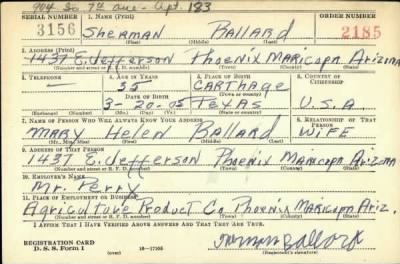 904 So 7th ave - Apt. 183
SERIAL NUMBER 1. NAME (Print) ORDER NUMBER
3156 Sherman Ballard 2185
(First) (Middle) (Last)
2. ADDRESS (Print)
1437 E. Jefferson Phoenix Maricopa Arizona
(Number and street or R. F. D. number) (Town) (County) (State)
3. TELEPHONE 4. AGE IN YEARS 5. PLACE OF BIRTH 6. COUNTRY OF CITIZENSHIP
— 35 Carthage
DATE OF BIRTH (Town or county)
3-20-05 Texas U.S.A
(Exchange) (Number) (Mo.) (Day) (Yr.) (State or country)
7. NAME OF PERSON WHO WILL ALWAYS KNOW YOUR ADDRESS 8. RELATIONSHIP OF THAT PERSON
Mary Helen Ballard Wife
(Mr., Mrs., Miss) (First) (Middle) (Last)
9. ADDRESS OF THAT PERSON
1437 E. Jefferson Phoenix Maricopa Arizona
(Number and street or R. F. D. number) (Town) (County) (State)
10. EMPLOYER'S NAME
Mr. Perry
11. PLACE OF EMPLOYMENT OR BUSINESS
Agriculture Product Co. Phoenix Maricopa Ariz.
(Number and street or R. F. D. number) (Town) (County) (State)
I AFFIRM THAT I HAVE VERIFIED ABOVE ANSWERS AND THAT THEY ARE TRUE.
REGISTRATION CARD
D. S. S. Form 1 (over) 16-17105 Sherman Ballard
(Registrant's signature)